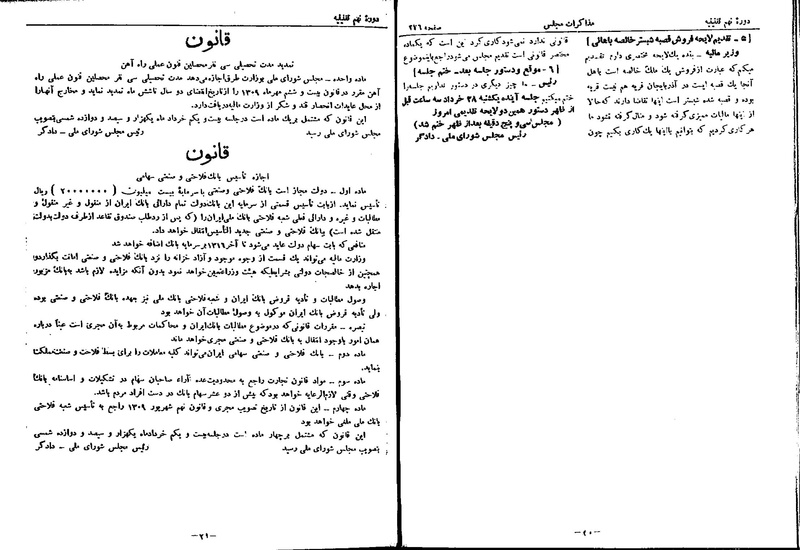 دورهٔ نهم تقنینیه
مذاکرات مجلس
صفحه ۲۲۶
[ ۵ - تقدیم لایحه فروش قصبه شبستر خالصه باهالی ]
وزیر مالیه - بنده یک لایحه مختصری دارم تقدیم
میکنم که عبارت از فروش یک ملک خالصه است باهل
آنجا یک قصبه ایست در آذربایجان قریه هم نیست قریه
بوده و قصبه شده شبستر است اینها تقاضا دارند که حالا
از اینها مالیات ممیزی گرفته شود و منال گرفته نشود ما
هر کاری کردیم که بتوانیم با اینها یک کاری بکنیم چون
قانونی ندارد نمی‌شود کاری کرد این است که یکماده
مختصر قانونی است تقدیم مجلس می‌شود راجع باین موضوع
[ ۶ - موقع و دستور جلسه بعد - ختم جلسه ]
رئیس - ما چیز دیگری در دستور نداریم جلسه را
ختم میکنیم جلسه آینده یکشنبه ۲۸ خرداد سه ساعت قبل
از ظهر دستور همین دو لایحه تقدیمی امروز
( مجلس سی و پنج دقیقه بعد از ظهر ختم شد )
رئیس مجلس شورای ملی - دادگر
-۲۰-
دورهٔ نهم تقنینیه
قانون
تمدید مدت تحصیلی سی نفر محصلین فنون عملی راه آهن
ماده واحده - مجلس شورای ملی بوزارت طرق اجازه می‌دهد مدت تحصیلی سی نفر محصلین فنون عملی راه
آهن مقرر در قانون بیست و ششم مهرماه ۱۳۰۹ را از تاریخ انقضای دو سال تا شش ماه تمدید نماید و مخارج آنها را
از محل عایدات انحصار قند و شکر از وزارت مالیه دریافت دارد.
این قانون که مشتمل بر یک ماده است در جلسه بیست و یکم خرداد ماه یکهزار و سیصد و دوازده شمسی بتصویب
مجلس شورای ملی رسید رئیس مجلس شورای ملی - دادگر
قانون
اجازه تأسیس بانک فلاحتی و صنعتی سهامی
ماده اول - دولت مجاز است بانک فلاحتی و صنعتی با سرمایهٔ بیست میلیون ( ۲۰۰۰۰۰۰۰ ) ریال
تأسیس نماید. از بابت تأسیس قسمتی از سرمایه این بانک دولت تمام دارائی بانک ایران از منقول و غیر منقول و
مطالبات و غیره و دارائی فعلی شعبه فلاحتی بانک ملی ایران را ( که پس از رد طلب صندوق تقاعد از طرف دولت بدولت
منتقل شده است ) ببانک فلاحتی و صنعتی جدید التأسیس انتقال خواهد داد.
منافعی که بابت سهام دولت عاید می‌شود تا آخر ۱۳۱۶ بر سرمایه بانک اضافه خواهد شد
وزارت مالیه می‌تواند یک قسمت از وجوه موجود و آزاد خزانه را نزد بانک فلاحتی و صنعتی امانت بگذارد و
همچنین از خالصجات دولتی بشرایطیکه هیئت وزراء تعیین خواهد نمود بدون آنکه مزایده لازم باشد به بانک مزبور
اجاره بدهد
وصول مطالبات و تأدیه قروض بانک ایران و شعبه فلاحتی بانک ملی نیز بعهده بانک فلاحتی و صنعتی بوده
ولی تأدیه قروض بانک ایران موکول به وصول مطالبات آن خواهد بود
تبصره - مقررات قانونی که در موضوع مطالبات بانک ایران و محاکمات مربوط به آن مجری است عیناً درباره
همان امور با وجود انتقال به بانک فلاحتی و صنعتی مجری خواهد ماند
ماده دوم - بانک فلاحتی و صنعتی سهامی ایران می‌تواند کلیه معاملات را برای بسط فلاحت و صنعت مملکت
بنماید.
ماده سوم - مواد قانون تجارت راجع به محدودیت عده آراء صاحبان سهام در تشکیلات و اساسنامه بانک
فلاحتی وقتی لازم‌الرعایه خواهد بود که بیش از دو عشر سهام بانک در دست افراد مردم باشد.
ماده چهارم - این قانون از تاریخ تصویب مجری و قانون نهم شهریور ۱۳۰۹ راجع به تأسیس شعبه فلاحتی
بانک ملی ملغی خواهد بود
این قانون که مشتمل بر چهار ماده است در جلسه بیست و یکم خرداد ماه یکهزار و سیصد و دوازده شمسی
بتصویب مجلس شورای ملی رسید رئیس مجلس شورای ملی - دادگر
-۲۱-